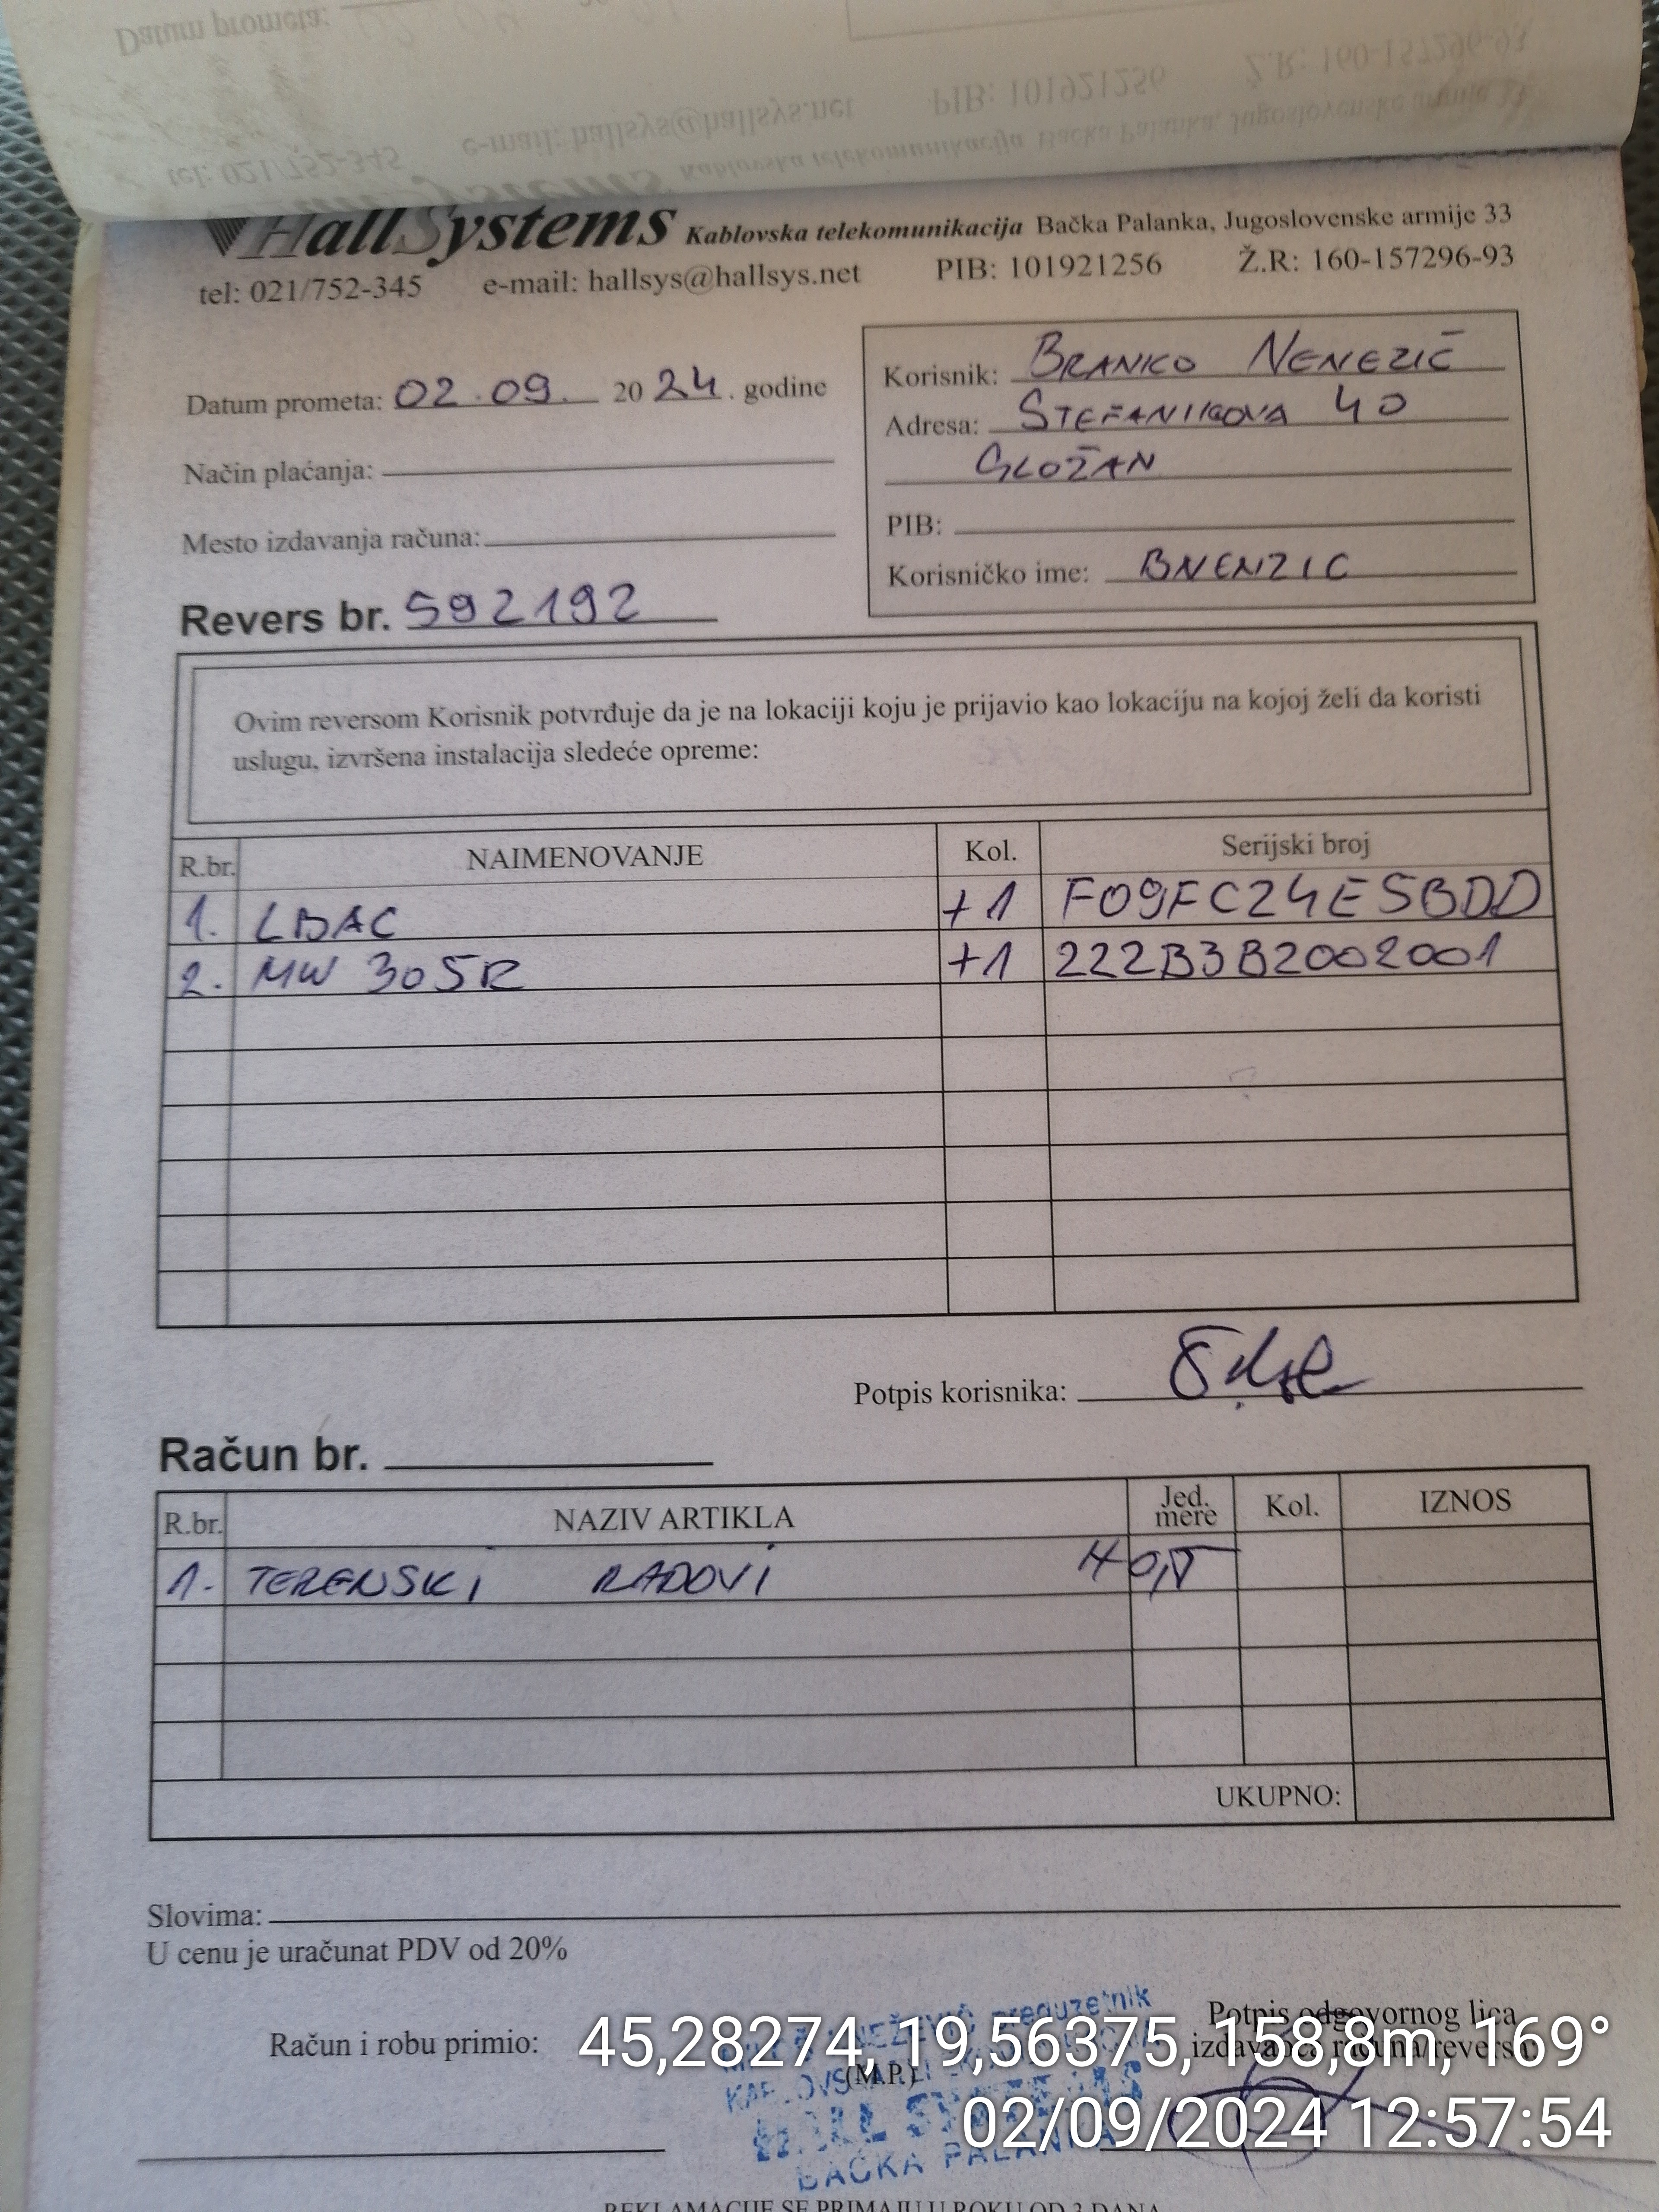 HallSystems Kablovska telekomunikacija Bačka Palanka, Jugoslovenske armije 33
tel: 021/752-345 e-mail: hallsys@hallsys.net PIB: 101921256 Ž.R: 160-157296-93
Datum prometa: 02.09. 2024. godine
Način plaćanja:
Mesto izdavanja računa:
Revers br. 592192
Korisnik: BRANKO NENEZIĆ
Adresa: STEFANIKOVA 40
GLOŽAN
PIB:
Korisničko ime: BNENZIC
Ovim reversom Korisnik potvrđuje da je na lokaciji koju je prijavio kao lokaciju na kojoj želi da koristi
uslugu, izvršena instalacija sledeće opreme:
R.br. NAIMENOVANJE Kol. Serijski broj
1. LBAC +1 F09FC24E5BDD
2. MW 305R +1 222B3B2002001
Potpis korisnika:
Račun br.
R.br. NAZIV ARTIKLA Jed. mere Kol. IZNOS
1. TERENSKI RADOVI
UKUPNO:
Slovima:
U cenu je uračunat PDV od 20%
Račun i robu primio:
(M.P.)
Potpis odgovornog lica
izdavanja računa/reversa
preduzetnik
BAČKA PALANKA
45,28274, 19,56375, 158,8m, 169°
02/09/2024 12:57:54
REKLAMACIJE SE PRIMAJU U ROKU OD 3 DANA